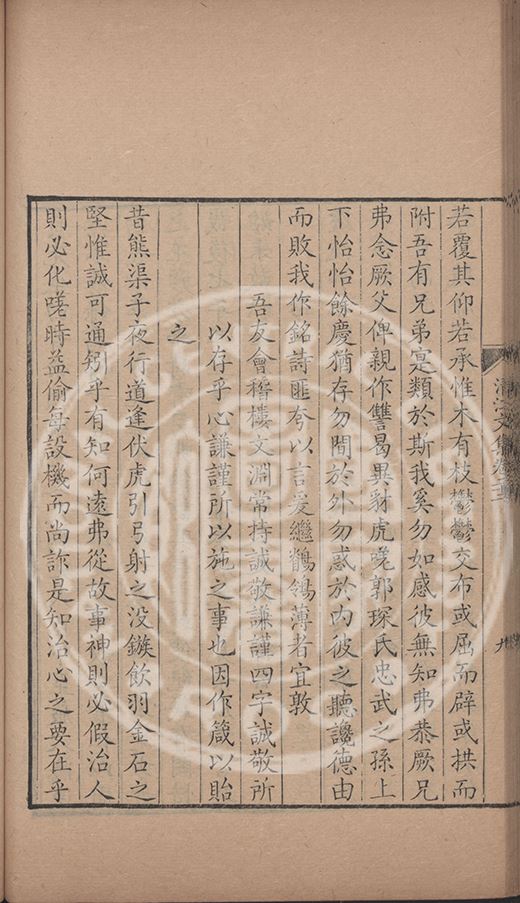 若覆其仰若承惟木有枝鬱鬱交布或屈而辟或拱而
附吾有兄弟寔類於斯我奚勿如感彼無知弗恭厥兄
弗念厥父俾親作讐曷異豺虎嗟郭琛氏忠武之孫上
下怡怡餘慶猶存勿間於外勿惑於内彼之聽讒德由
而敗我作銘詩匪夸以言爰繼鶺鴒薄者宜敦
吾友會稽樓文淵常持誠敬謙謹四字誠敬所
以存乎心謙謹所以施之事也因作箴以貽
之
昔熊渠子夜行道逢伏虎引弓射之没鏃飲羽金石之
堅惟誠可通矧乎有知何遠弗從故事神則必假治人
則必化嗟時益偷每設機而尚詐是知治心之要在乎